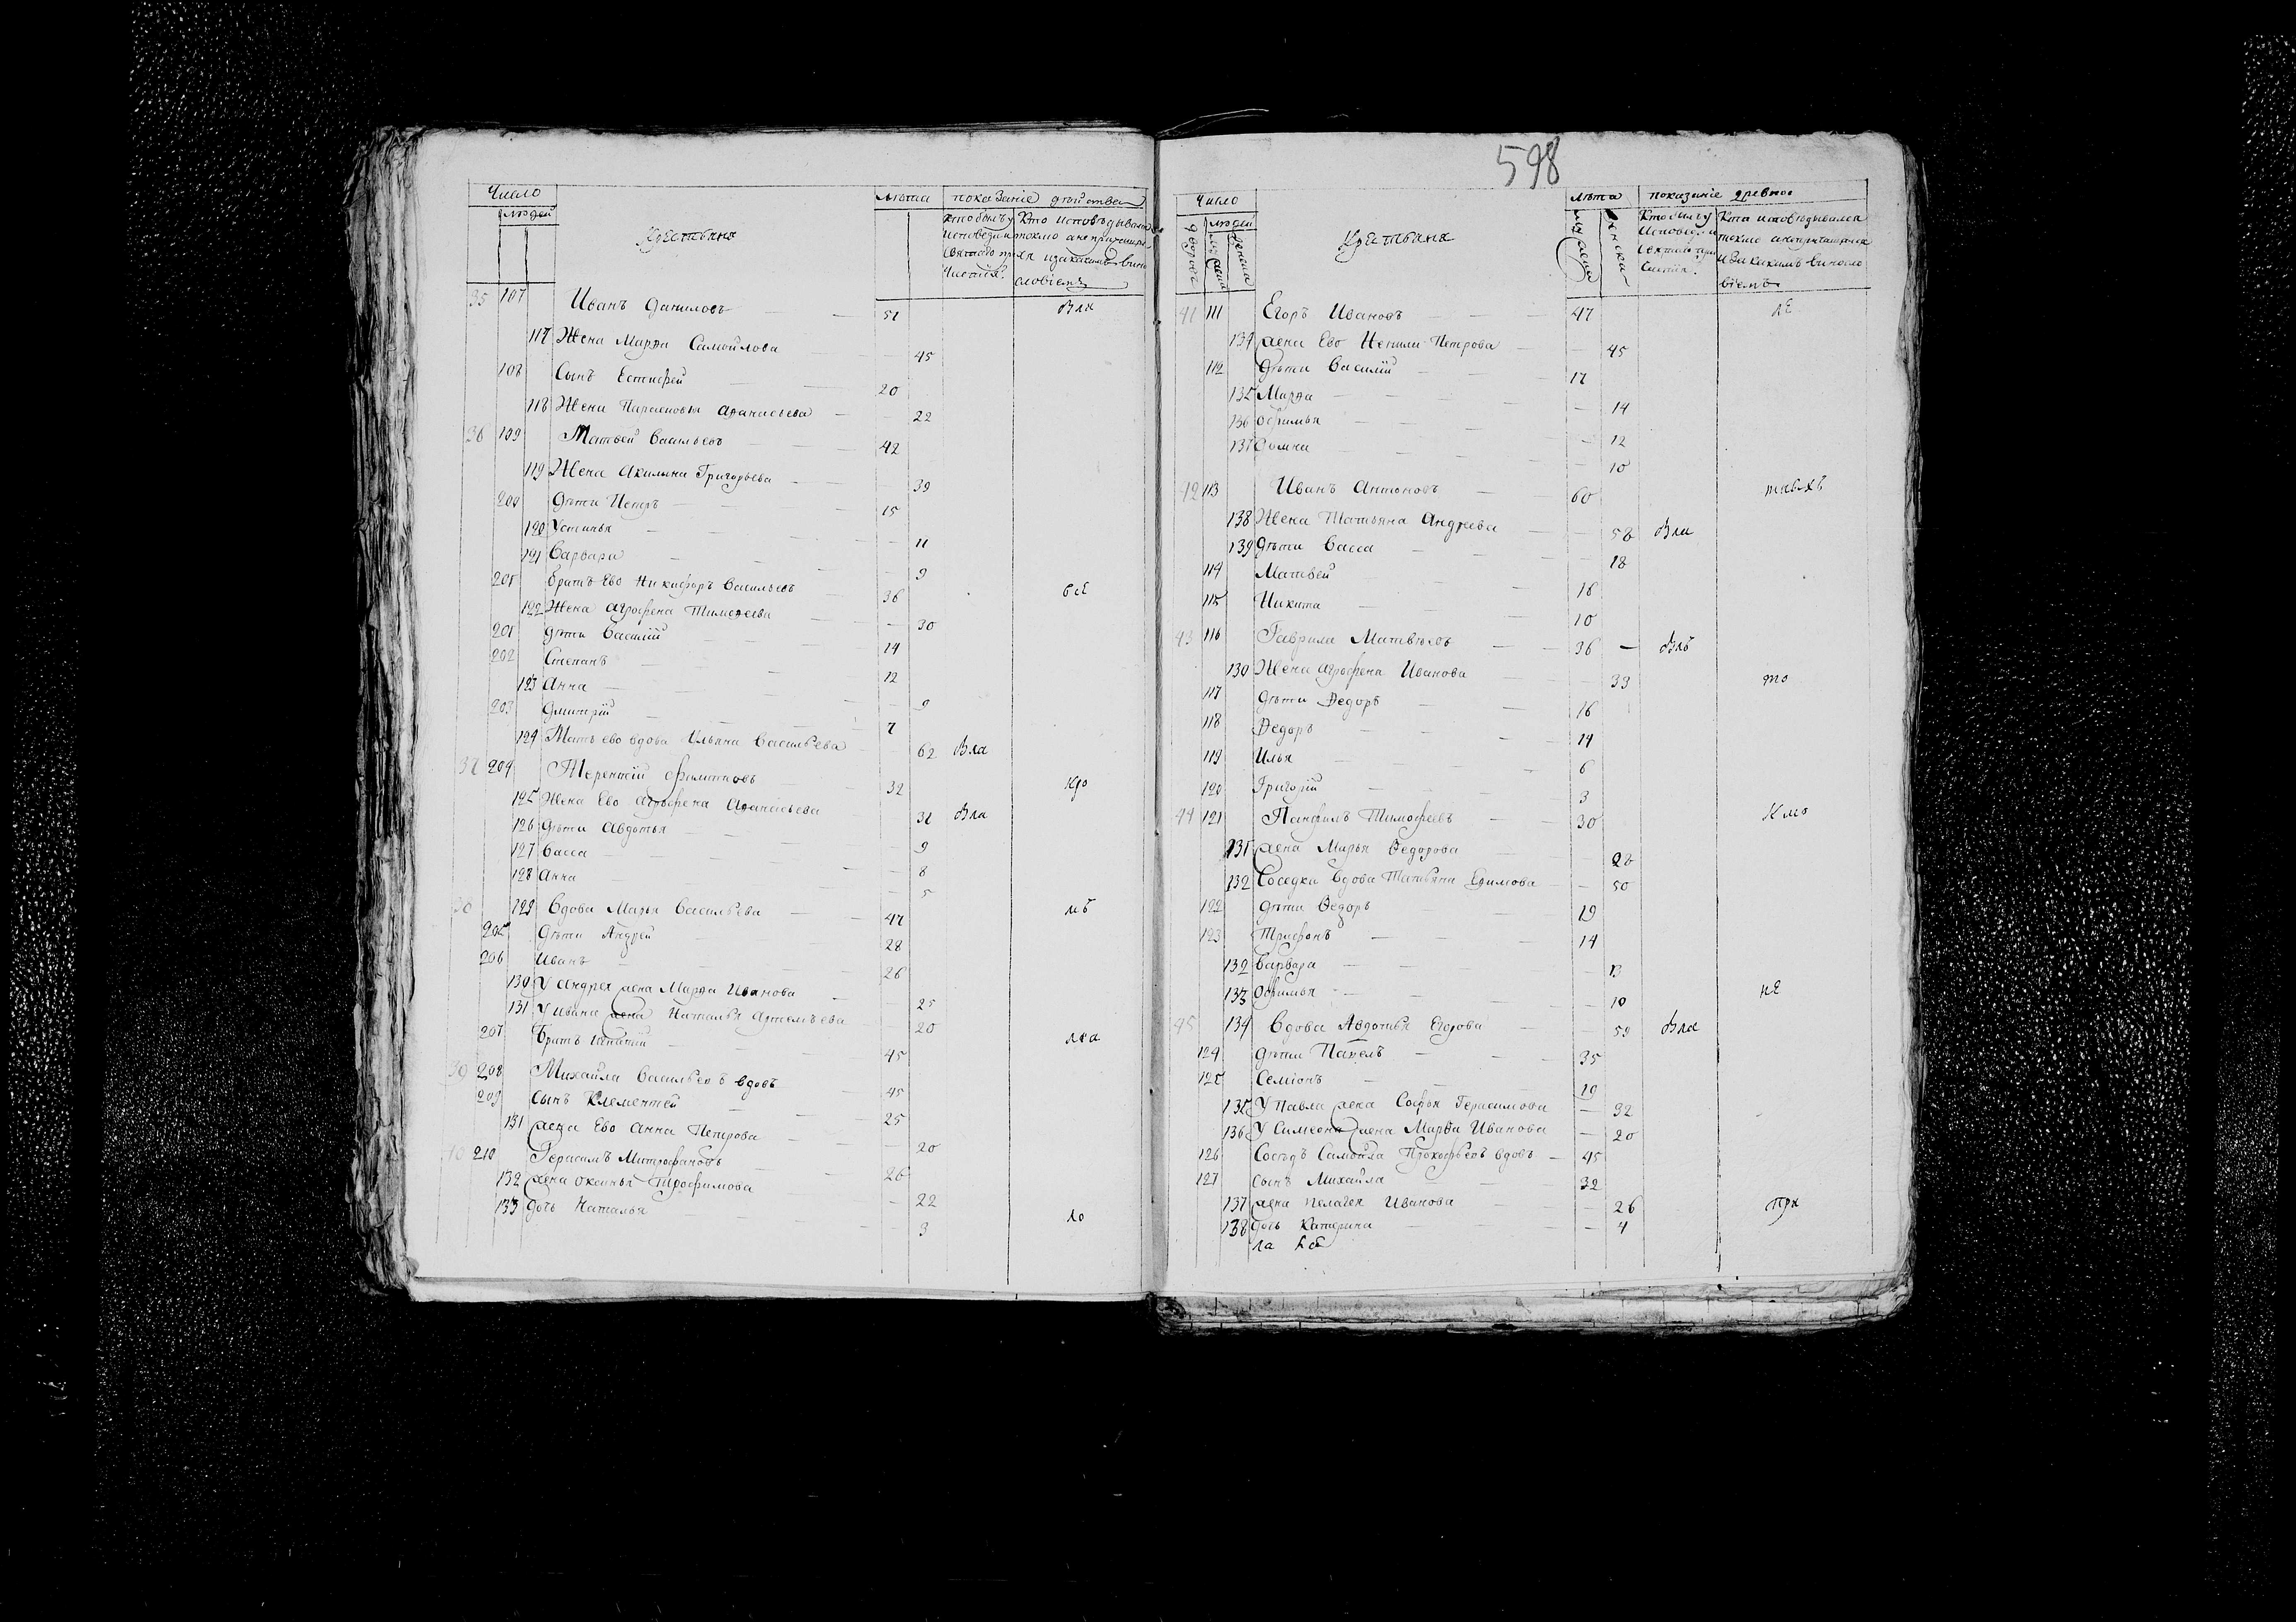 Число
людей
Крестьяна
лѣта
показаніе дѣйства
кто былъ у исповеди и святаго причастія.
Кто исповѣдывался токмо а непричащался и закакимъ винословіемъ
35 107 Иванъ Даниловъ — 51
117 Жена Марѳа Самойлова — 45
108 Сынъ Естифей — 20
118 Жена Парасковья Аѳанасьева — 22
36 109 Матвей Васильевъ — 42
119 Жена Акилина Григорьева — 39
200 Дѣти Петръ — 15
120 Устинья — 11
121 Варвара — 9
201 братъ Ево Никифоръ Васильевъ — 36 все
122 Жена Агрофена Тимоѳеева — 30
201 дѣти Василій — 14
202 Степанъ — 12
123 Анна — 9
203 Дмитрій — 7
124 Мать ево вдова Ульяна Васильева 62 Вла
37 204 Терентій Филиповъ 32
125 Жена Ево Агрофена Аѳанасьева 31 Вла
126 Дѣти Авдотья — 9
127 Васса — 8
128 Анна — 5
129 Вдова Марья Васильева — 47
205 Дѣти Андрей 28
206 Иванъ — 26
130 У Андрея жена Марѳа Иванова — 25
131 У ивана жена Наталья Артемьева — 20
207 Братъ Игнатий — 45
39 208 Михайла Васильевъ вдовъ 45
209 Сынъ Клементей — 25
131 жена Ево Анна Петрова — 20
40 210 Герасимъ Митрофановъ 26
132 жена Оксинья Трофимова — 22
133 дочь Наталья — 3 ло
598
Число
дворовъ
людей
мужеска
женска
Крестьяна
лѣта
мужеска
женска
показаніе
Кто былъ у исповеди и святаго причастія.
Кто исповѣдывался токмо а непричащался и Закакимъ винословіемъ
41 111 Егоръ Ивановъ — 47
134 жена Ево Петрова — 45
112 Дѣти Василій — 17
135 Марѳа — 14
136 Офимья — 12
137 Домна — 10
42 113 Иванъ Антоновъ — 60
138 Жена Татьяна Андреева — 58 Вла
139 Дѣти Васса — 18
114 Матвей 16
115 Никита — 10
43 116 Гаврила Матвѣевъ — 36 —
130 Жена Агрофена Иванова — 33 то
117 дѣти Ѳедоръ — 16
118 Ѳедоръ — 14
119 Илья — 6
120 Григорій — 3
44 121 Панфилъ Тимофеевъ — 30
131 жена Марья Ѳедорова — 28
132 Соседка Вдова Татьяна Еѳимова — 50
122 дѣти Ѳедоръ 19
123 Трифонъ — 14
132 Варвара — 13
133 Офимья — 10 не
45 134 Вдова Авдотья Егорова — 59 Вла
124 дѣти Павелъ — 35
125 Семіонъ — 19
135 У Павла жена Софья Герасимова — 32
136 У Симеона жена Марѳа Иванова — 20
126 Сосѣдъ Самойла Прокофьевъ вдовъ — 45
127 сынъ Михайла — 32
137 жена Пелагея Иванова — 26
138 дочь Катерина — 4